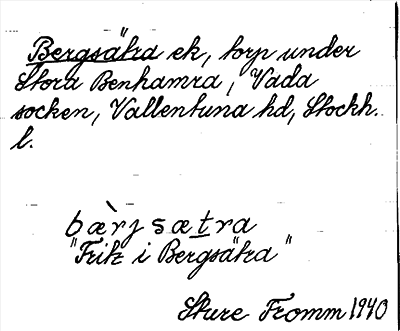 Bergsätra ek, torp under
Stora Benhamra, Vada
socken, Vallentuna hd, Stockh.
l.
bæ̀rjsætra
"Fritz i Bergsätra"
Sture Fromm 1940